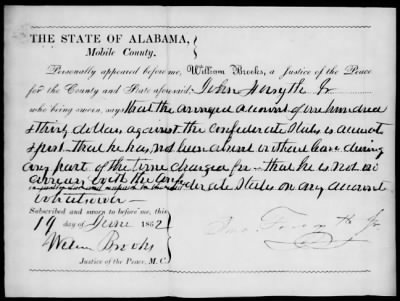 THE STATE OF ALABAMA,
Mobile County.
Personally appeared before me, William Brooks, a Justice of the Peace
for the County and State aforesaid, John Forsyth Jr
who being sworn, says that the annexed account of one hundred
& thirty dollars against the Confederate States is accurate
& just - that he has not been absent without leave during
any part of the time charged for - that he is not in
arrears with the Confederate States on any account
whatsoever -
Subscribed and sworn to before me, this
19 day of June 1862
Jno. Forsyth Jr.
Willm Brooks
Justice of the Peace, M. C.